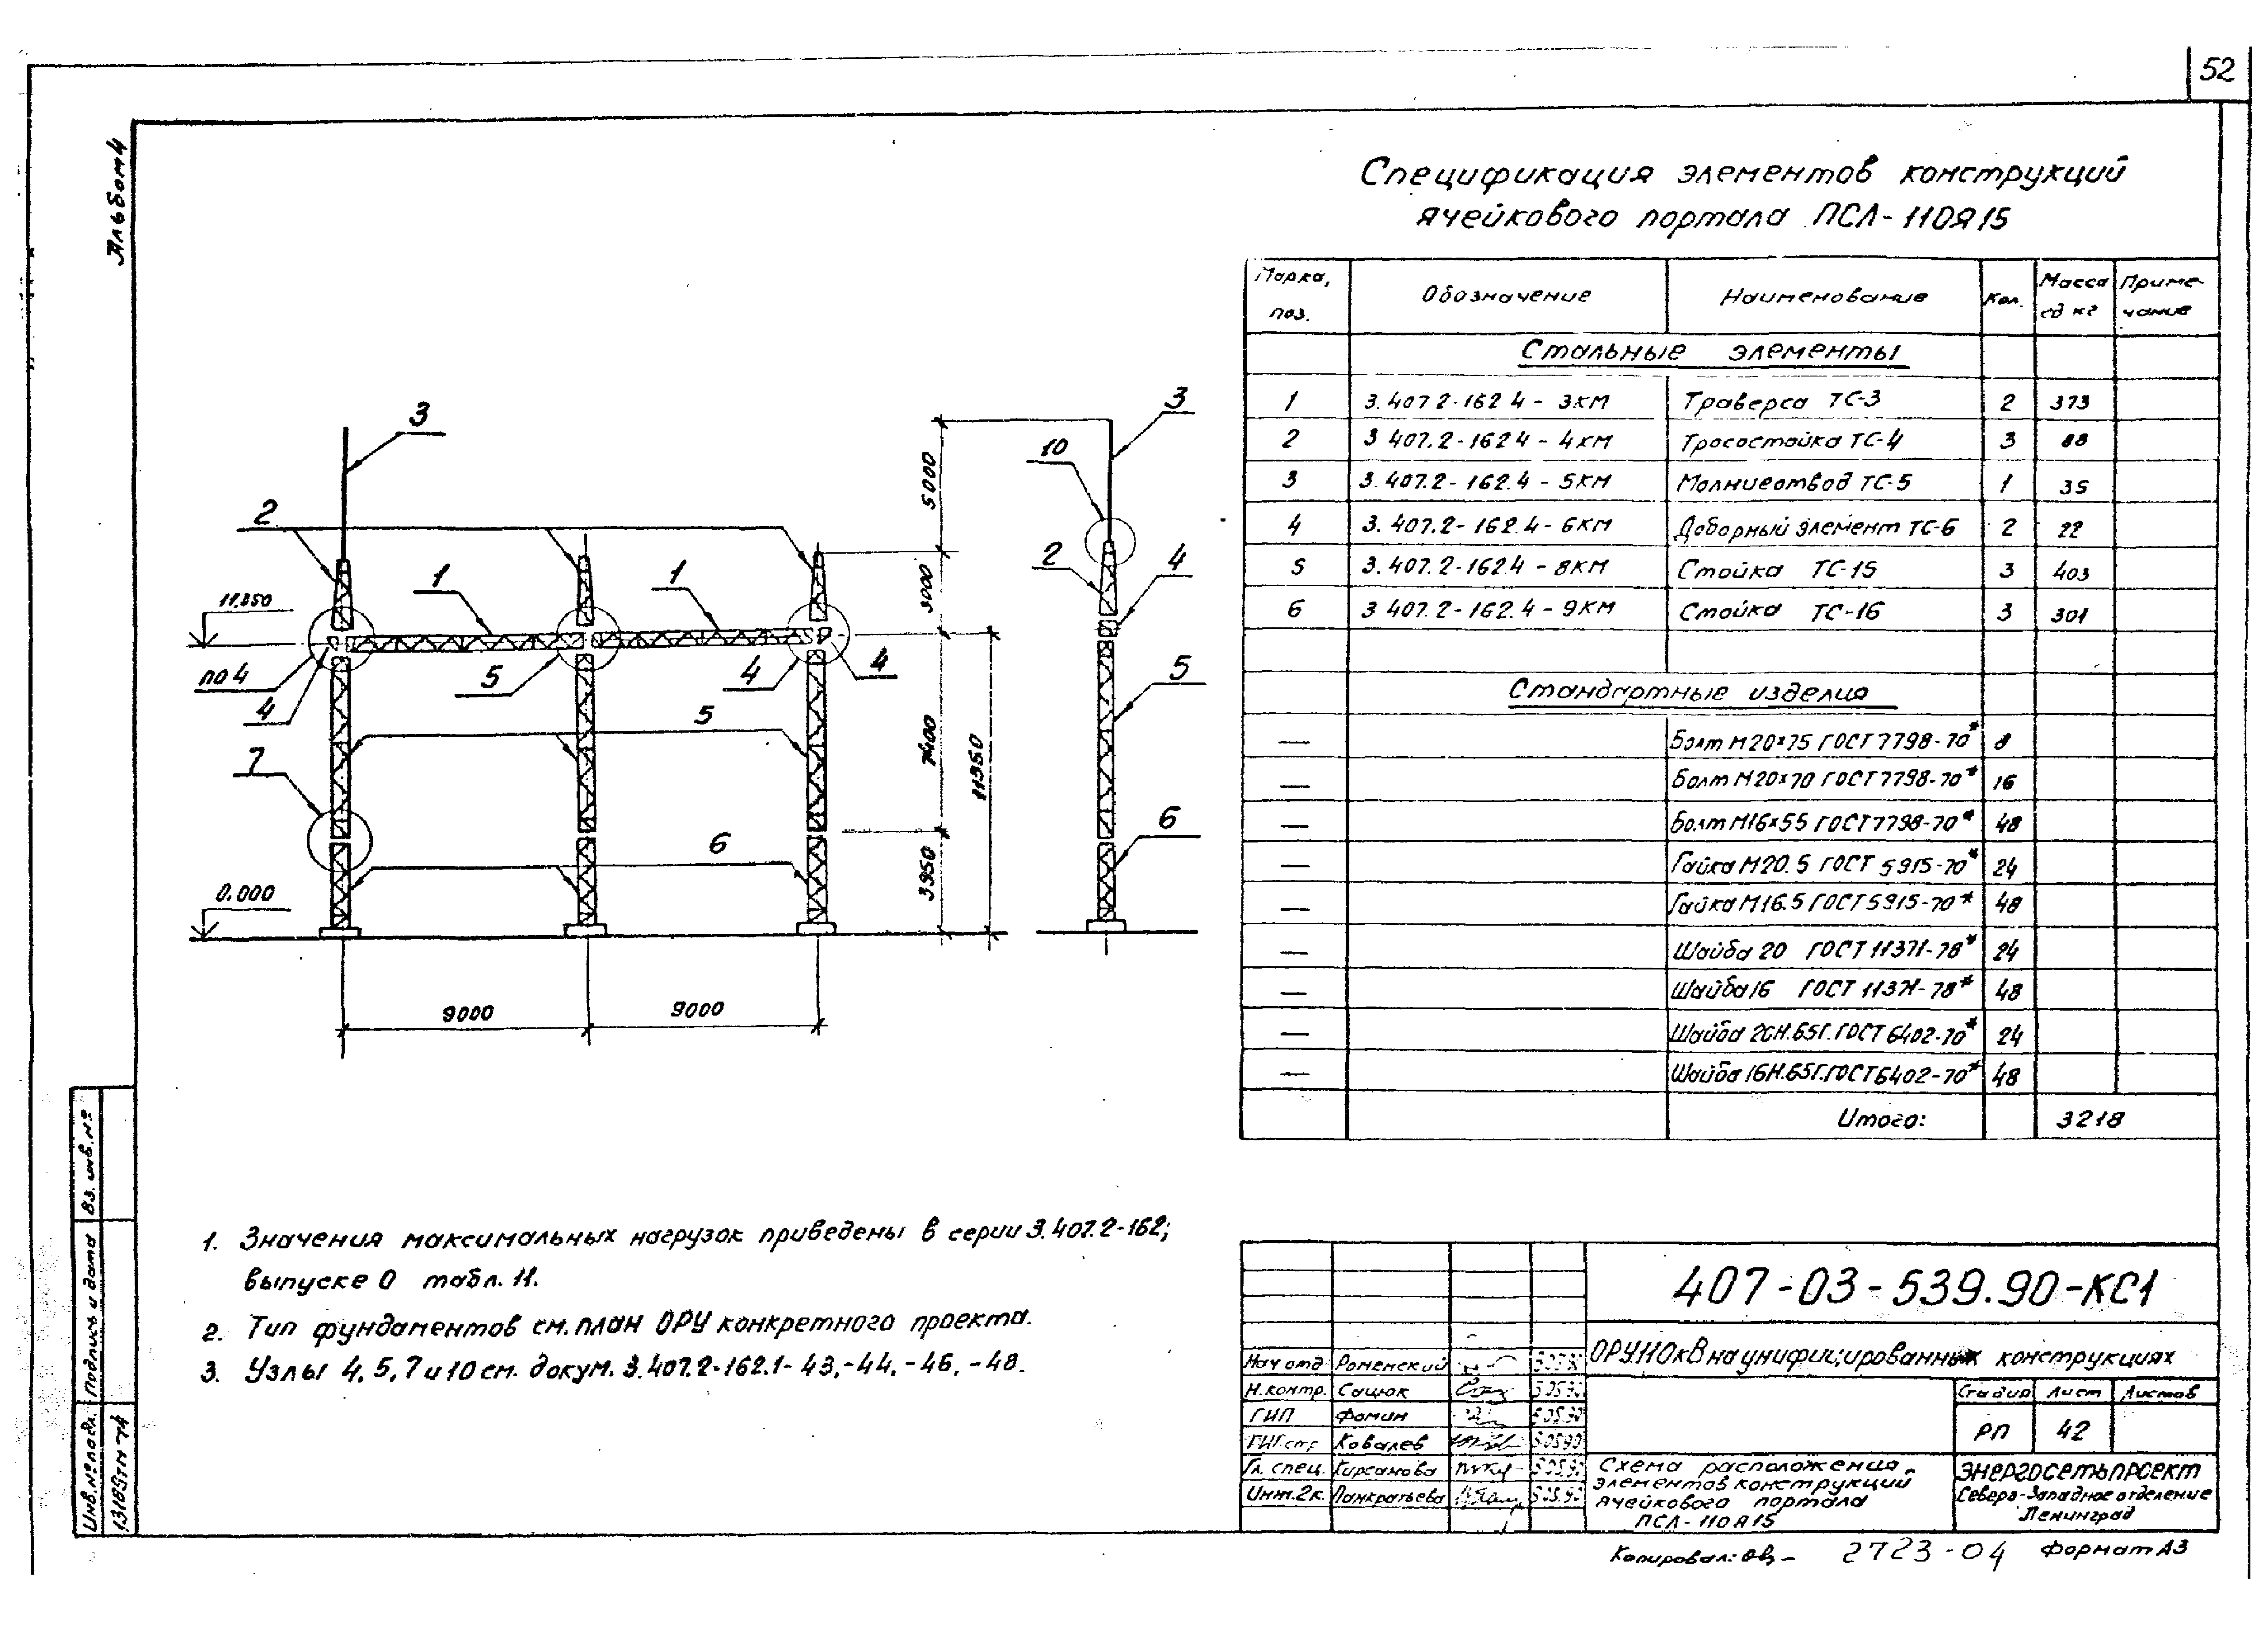 52
Альбом 4
Спецификация элементов конструкций
ячейкового портала ПСЛ-110Я15
Марка, поз. Обозначение Наименование Кол. Масса ед кг Приме-чание
Стальные элементы
1 3.407 2-162 4 - 3КМ Траверса ТС-3 2 373
2 3 407.2-162 4 - 4КМ Тросостойка ТС-4 3 88
3 3.407.2-162.4 - 5КМ Молниеотвод ТС-5 1 35
4 3.407.2-162.4-6КМ Доборный элемент ТС-6 2 22
5 3.407.2-162.4 - 8КМ Стойка ТС-15 3 403
6 3 407.2-162.4 - 9КМ Стойка ТС-16 3 301
Стандартные изделия
— Болт М20×75 ГОСТ 7798-70* 8
— Болт М20×70 ГОСТ 7798-70* 16
— Болт М16×55 ГОСТ 7798-70* 48
— Гайка М20.5 ГОСТ 5915-70* 24
— Гайка М16.5 ГОСТ 5915-70* 48
— Шайба 20 ГОСТ 11371-78* 24
— Шайба 16 ГОСТ 11371-78* 48
— Шайба 20Н.65Г.ГОСТ 6402-70* 24
— Шайба 16Н.65Г.ГОСТ 6402-70* 48
Итого: 3218
3
2
1
1
11.350
по 4
4
5
4
4
5
7
6
0.000
9000
9000
5000
3000
7400
3950
11350
3
10
2
4
5
6
1. Значения максимальных нагрузок приведены в серии 3.407.2-162;
выпуске 0 табл. 11.
2. Тип фундаментов см. план ОРУ конкретного проекта.
3. Узлы 4, 5, 7 и 10 см. докум. 3.407.2-162.1-43,-44,-46,-48.
Инв.№ подл. Подпись и дата Вз. инв.№
407-03-539.90-КС1
ОРУ110кВ на унифицированных конструкциях
Нач отд Роменский
Н.контр. Сацюк
ГИП Фомин
ГИП стр Ковалев
Гл. спец. Кирсанова
Инж.2к. Панкратьева
Стадия Лист Листов
РП 42
Схема расположения
элементов конструкций
ячейкового портала
ПСЛ-110Я15
ЭНЕРГОСЕТЬПРОЕКТ
Северо-Западное отделение
Ленинград
Копировал:
2723-04
Формат А3